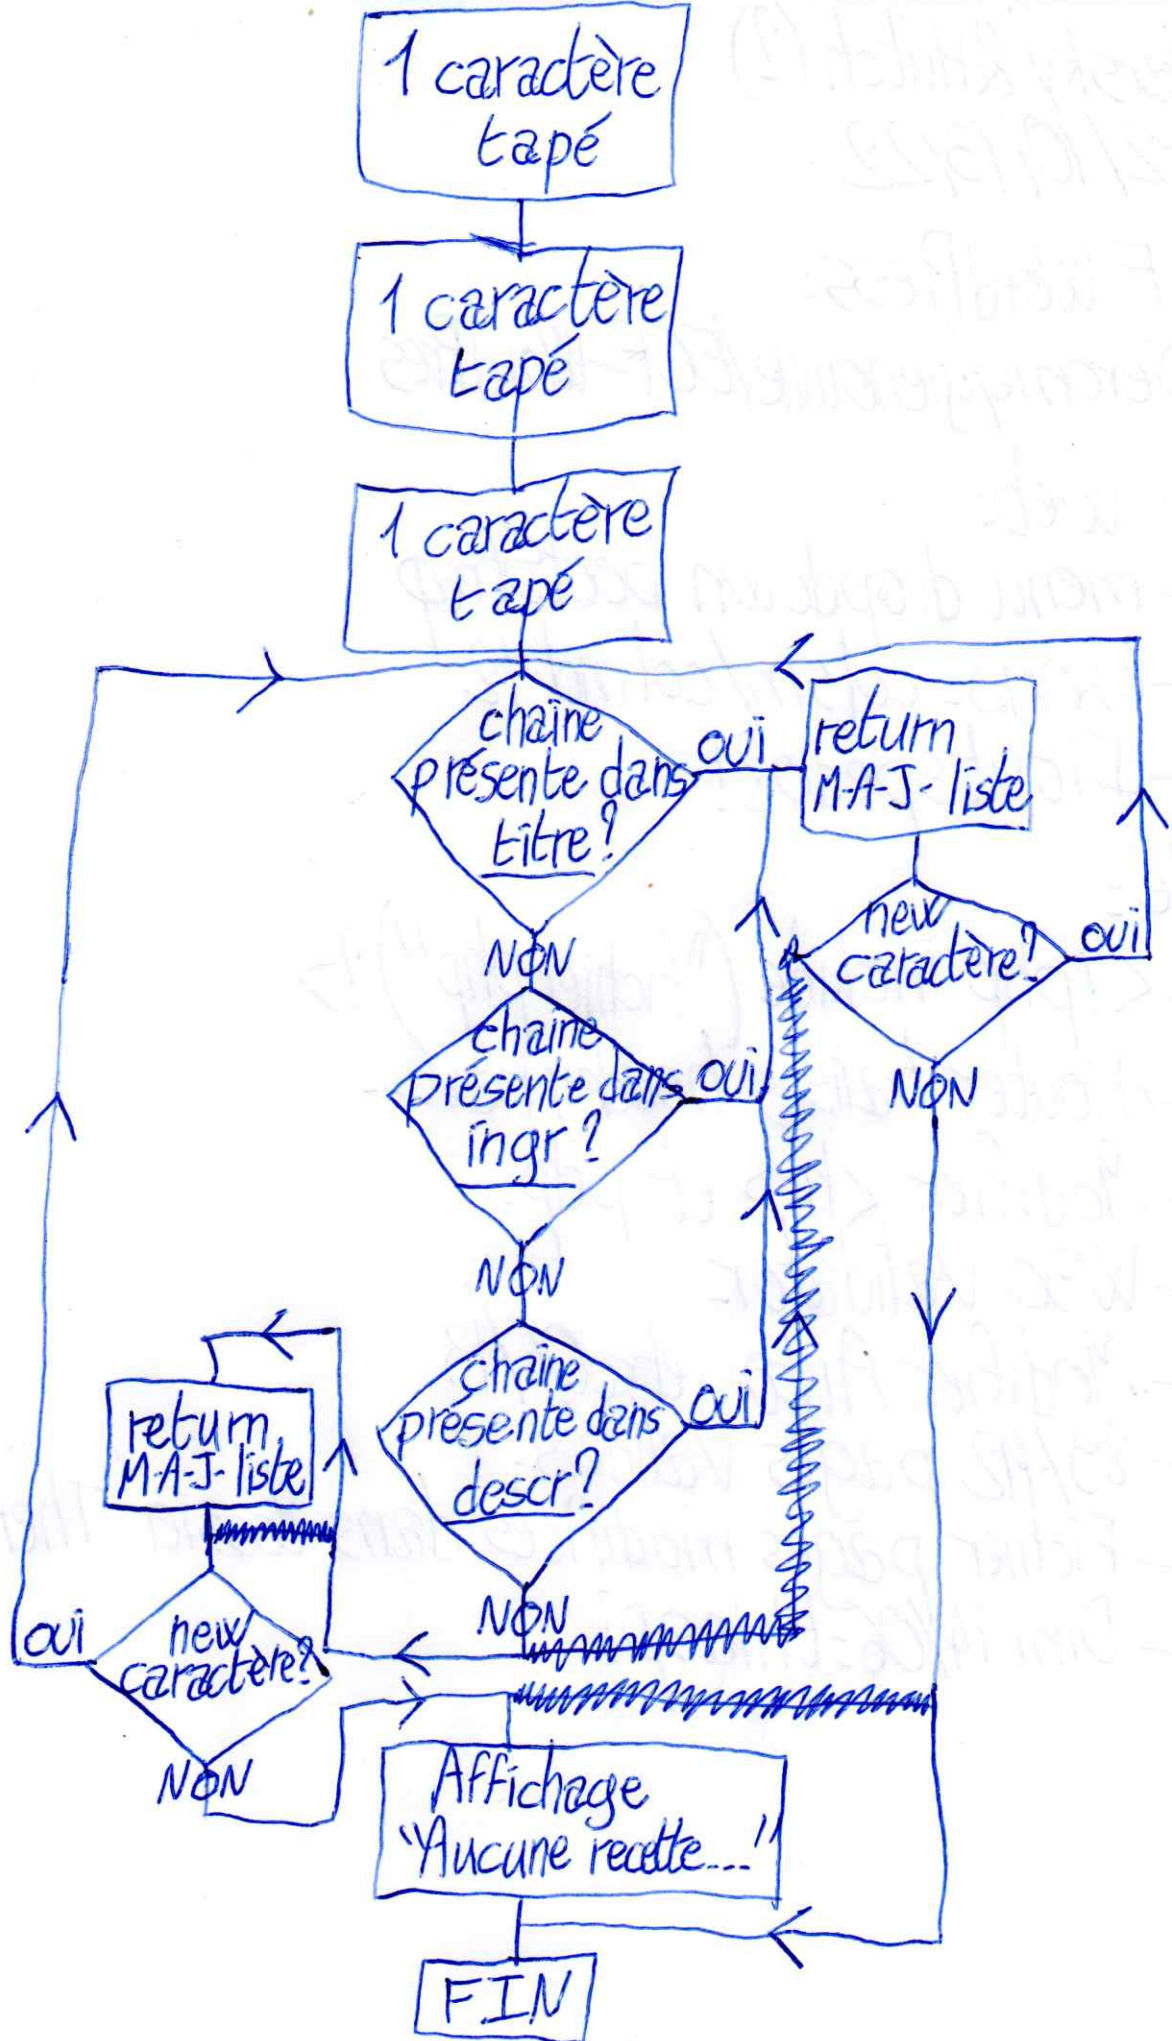 1 caractère
tapé
1 caractère
tapé
1 caractère
tapé
chaîne
présente dans
titre?
OUI
return
M-A-J- liste
new
caractère?
OUI
NON
NON
chaîne
présente dans
ingr?
OUI
NON
chaîne
présente dans
descr?
OUI
NON
return
M-A-J- liste
new
caractère?
OUI
NON
Affichage
"Aucune recette..."
F.I.N